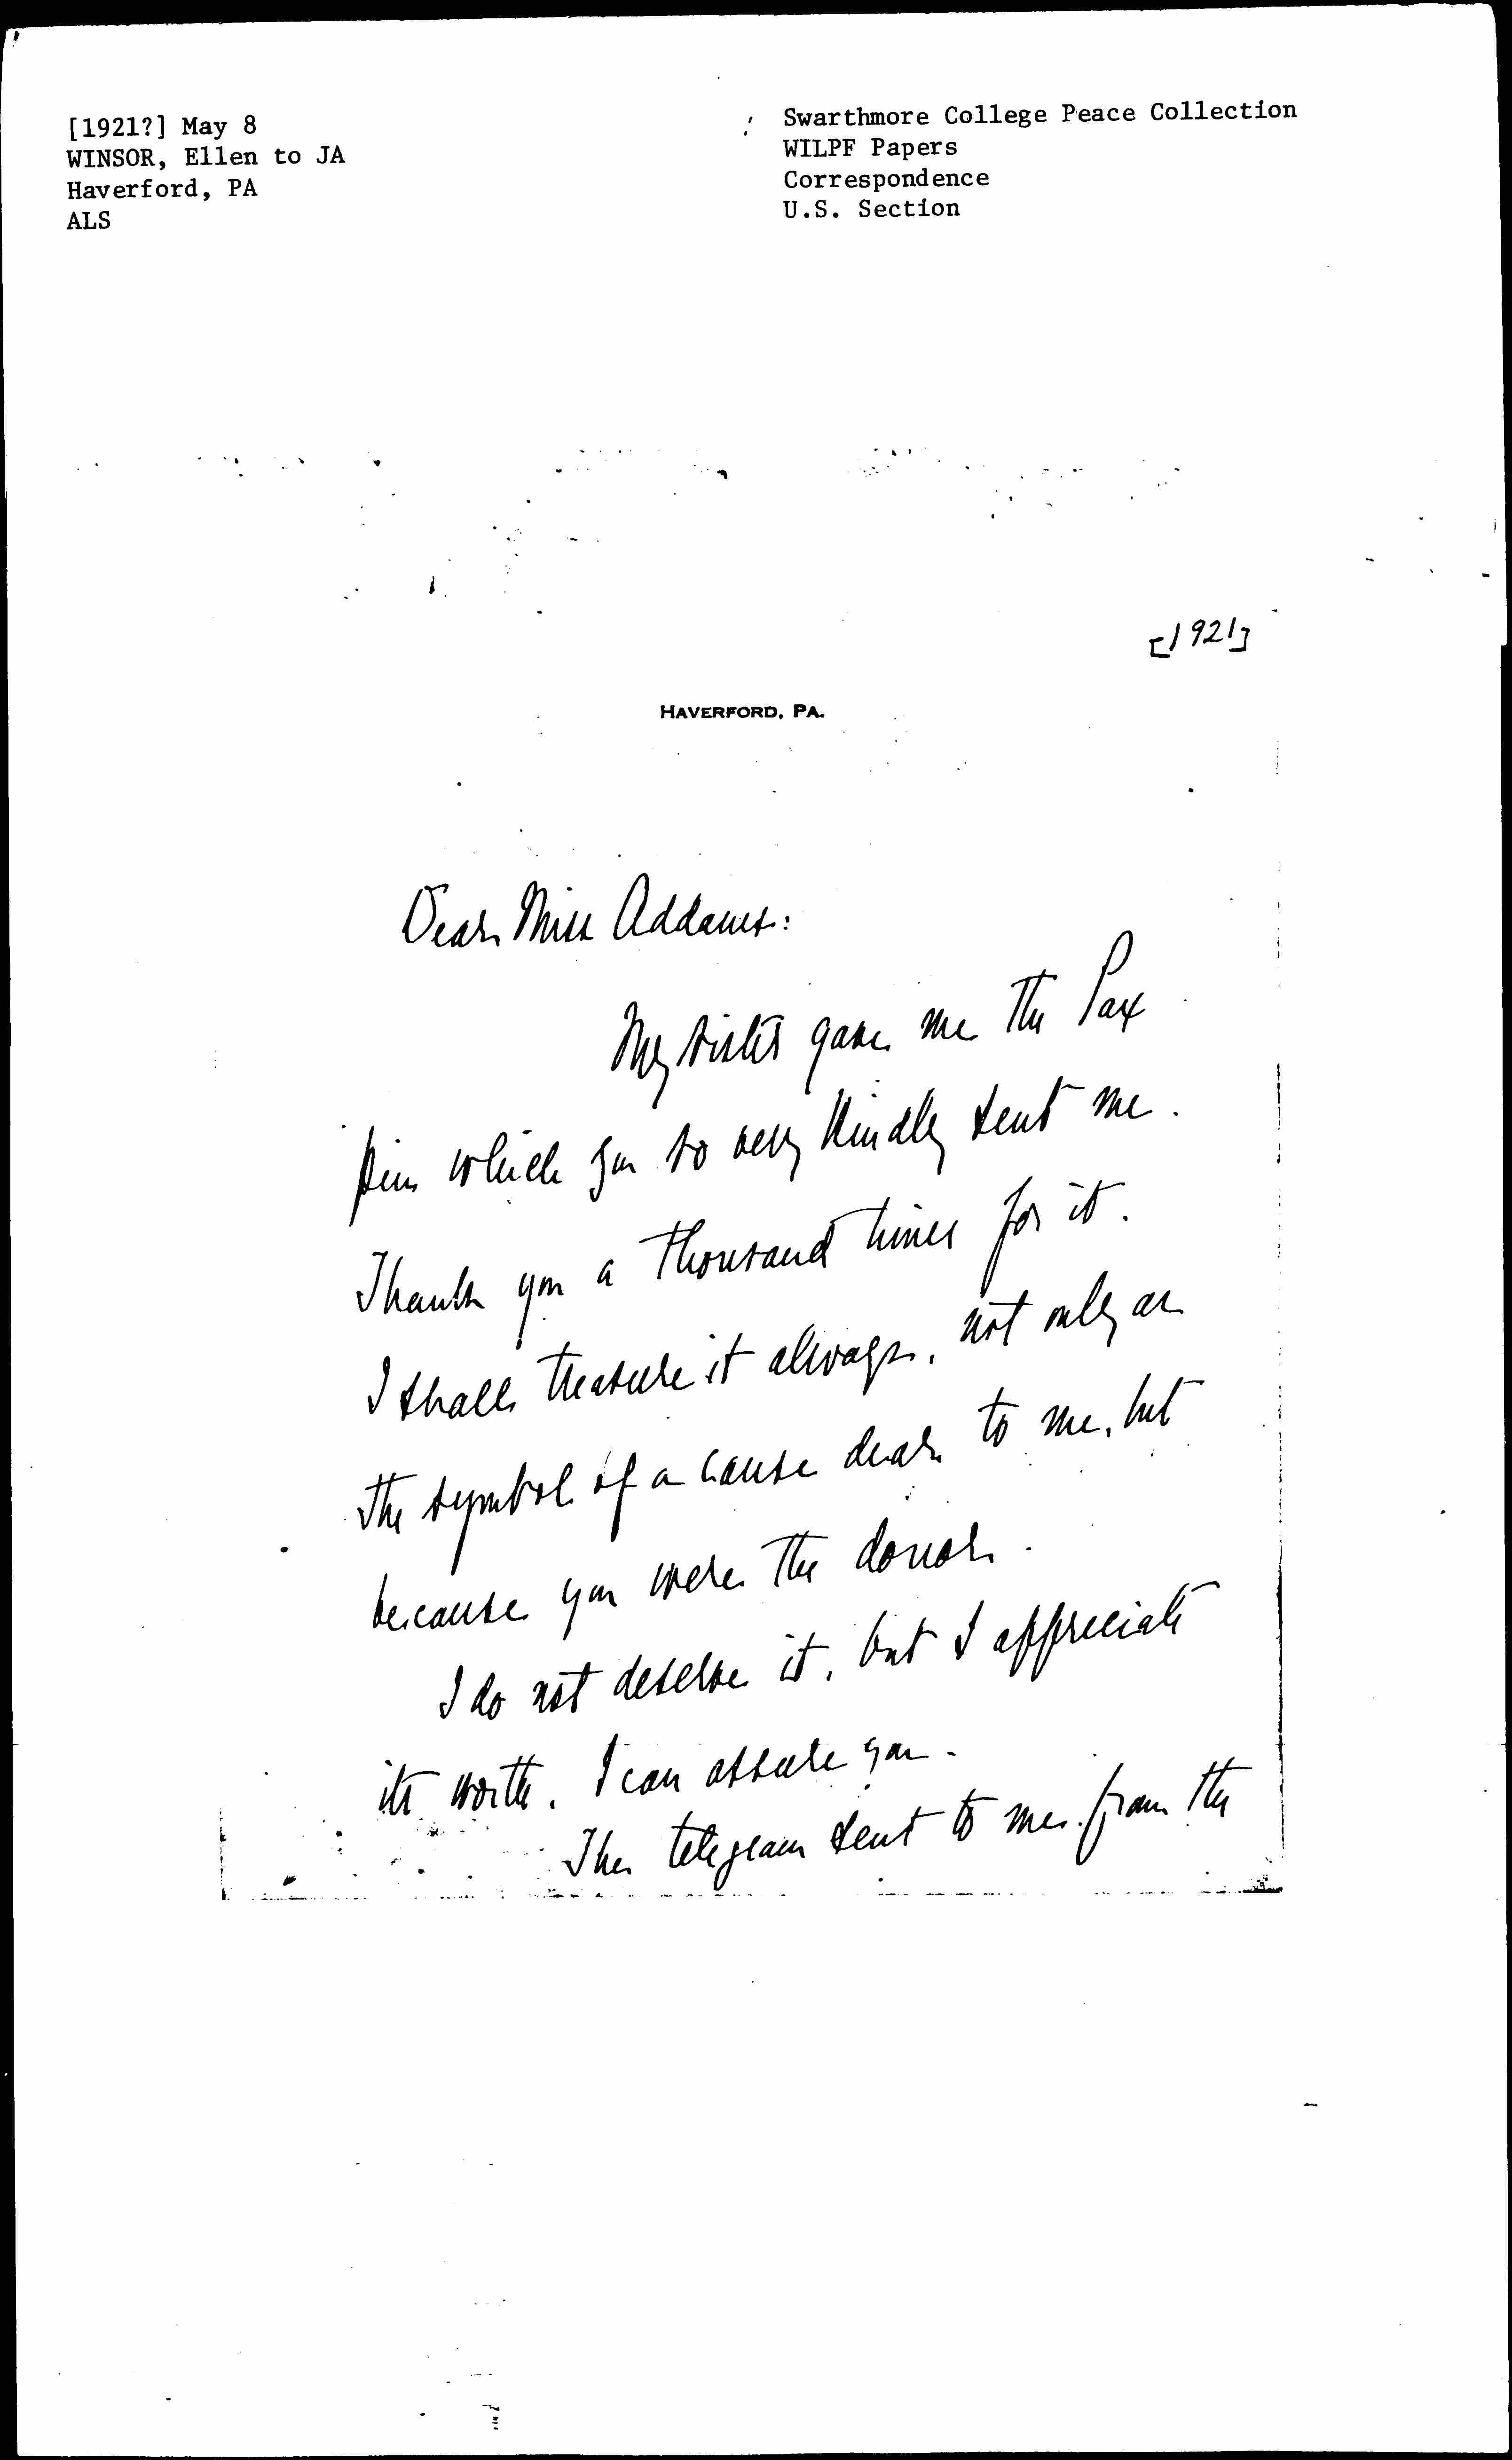 [1921?] May 8
WINSOR, Ellen to JA
Haverford, PA
ALS
Swarthmore College Peace Collection
WILPF Papers
Correspondence
U.S. Section
[1921]
HAVERFORD, PA.
Dear Miss Addams:
My sister gave me the Pax
pin which you so very kindly sent me.
Thank you a thousand times for it.
I shall treasure it always, not only as
the symbol of a cause dear to me, but
because you were the donor.
I do not deserve it, but I appreciate
its worth, I can assure you.
The telegram sent to me from the